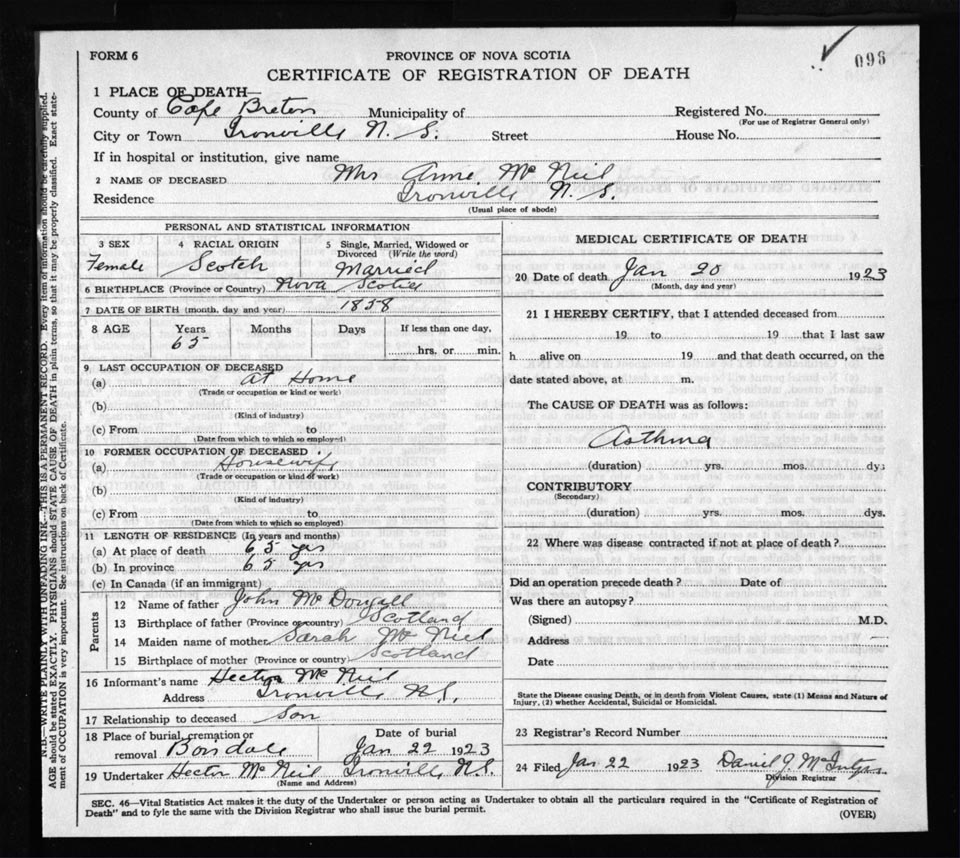 FORM 6
PROVINCE OF NOVA SCOTIA
098
CERTIFICATE OF REGISTRATION OF DEATH
1 PLACE OF DEATH—
County of Cape Breton Municipality of Registered No.
(For use of Registrar General only)
City or Town Ironville N. S. Street House No.
If in hospital or institution, give name
2 NAME OF DECEASED Mrs Anne Mc Neil
Residence Ironville N. S.
(Usual place of abode)
PERSONAL AND STATISTICAL INFORMATION
3 SEX 4 RACIAL ORIGIN 5 Single, Married, Widowed or Divorced (Write the word)
Female Scotch Married
6 BIRTHPLACE (Province or Country) Nova Scotia
7 DATE OF BIRTH (month, day and year) 1858
8 AGE Years Months Days If less than one day,
65 hrs. or min.
9 LAST OCCUPATION OF DECEASED
(a) At Home
(Trade or occupation or kind or work)
(b)
(Kind of industry)
(c) From to
(Date from which to which so employed)
10 FORMER OCCUPATION OF DECEASED
(a) Housewife
(Trade or occupation or kind or work)
(b)
(Kind of industry)
(c) From to
(Date from which to which so employed)
11 LENGTH OF RESIDENCE (In years and months)
(a) At place of death 65 yrs
(b) In province 65 yrs
(c) In Canada (if an immigrant)
Parents
12 Name of father John Mc Dougall
13 Birthplace of father (Province or country) Scotland
14 Maiden name of mother Sarah Mc Neil
15 Birthplace of mother (Province or country) Scotland
16 Informant's name Hector Mc Neil
Address Ironville N.S.
17 Relationship to deceased Son
18 Place of burial, cremation or removal Boisdale
Date of burial
Jan 22 1923
19 Undertaker Hector Mc Neil Ironville N.S.
(Name and Address)
MEDICAL CERTIFICATE OF DEATH
20 Date of death Jan 20 1923
(Month, day and year)
21 I HEREBY CERTIFY, that I attended deceased from
19 to 19 that I last saw
h alive on 19 and that death occurred, on the
date stated above, at m.
The CAUSE OF DEATH was as follows:
Asthma
(duration) yrs. mos. dys
CONTRIBUTORY
(Secondary)
(duration) yrs. mos. dys.
22 Where was disease contracted if not at place of death?
Did an operation precede death? Date of
Was there an autopsy?
(Signed) M.D.
Address
Date
State the Disease causing Death, or in death from Violent Causes, state (1) Means and Nature of
Injury, (2) whether Accidental, Suicidal or Homicidal.
23 Registrar's Record Number
24 Filed Jan 22 1923 Daniel J. McIntyre
Division Registrar
SEC. 46—Vital Statistics Act makes it the duty of the Undertaker or person acting as Undertaker to obtain all the particulars required in the "Certificate of Registration of
Death" and to fyle the same with the Division Registrar who shall issue the burial permit.
(OVER)
N.B.—WRITE PLAINLY WITH UNFADING INK—THIS IS A PERMANENT RECORD. Every item of information should be carefully supplied.
AGE should be stated EXACTLY. PHYSICIANS should STATE CAUSE OF DEATH in plain terms, so that it may be properly classified. Exact statement of OCCUPATION is very important. See instructions on back of Certificate.